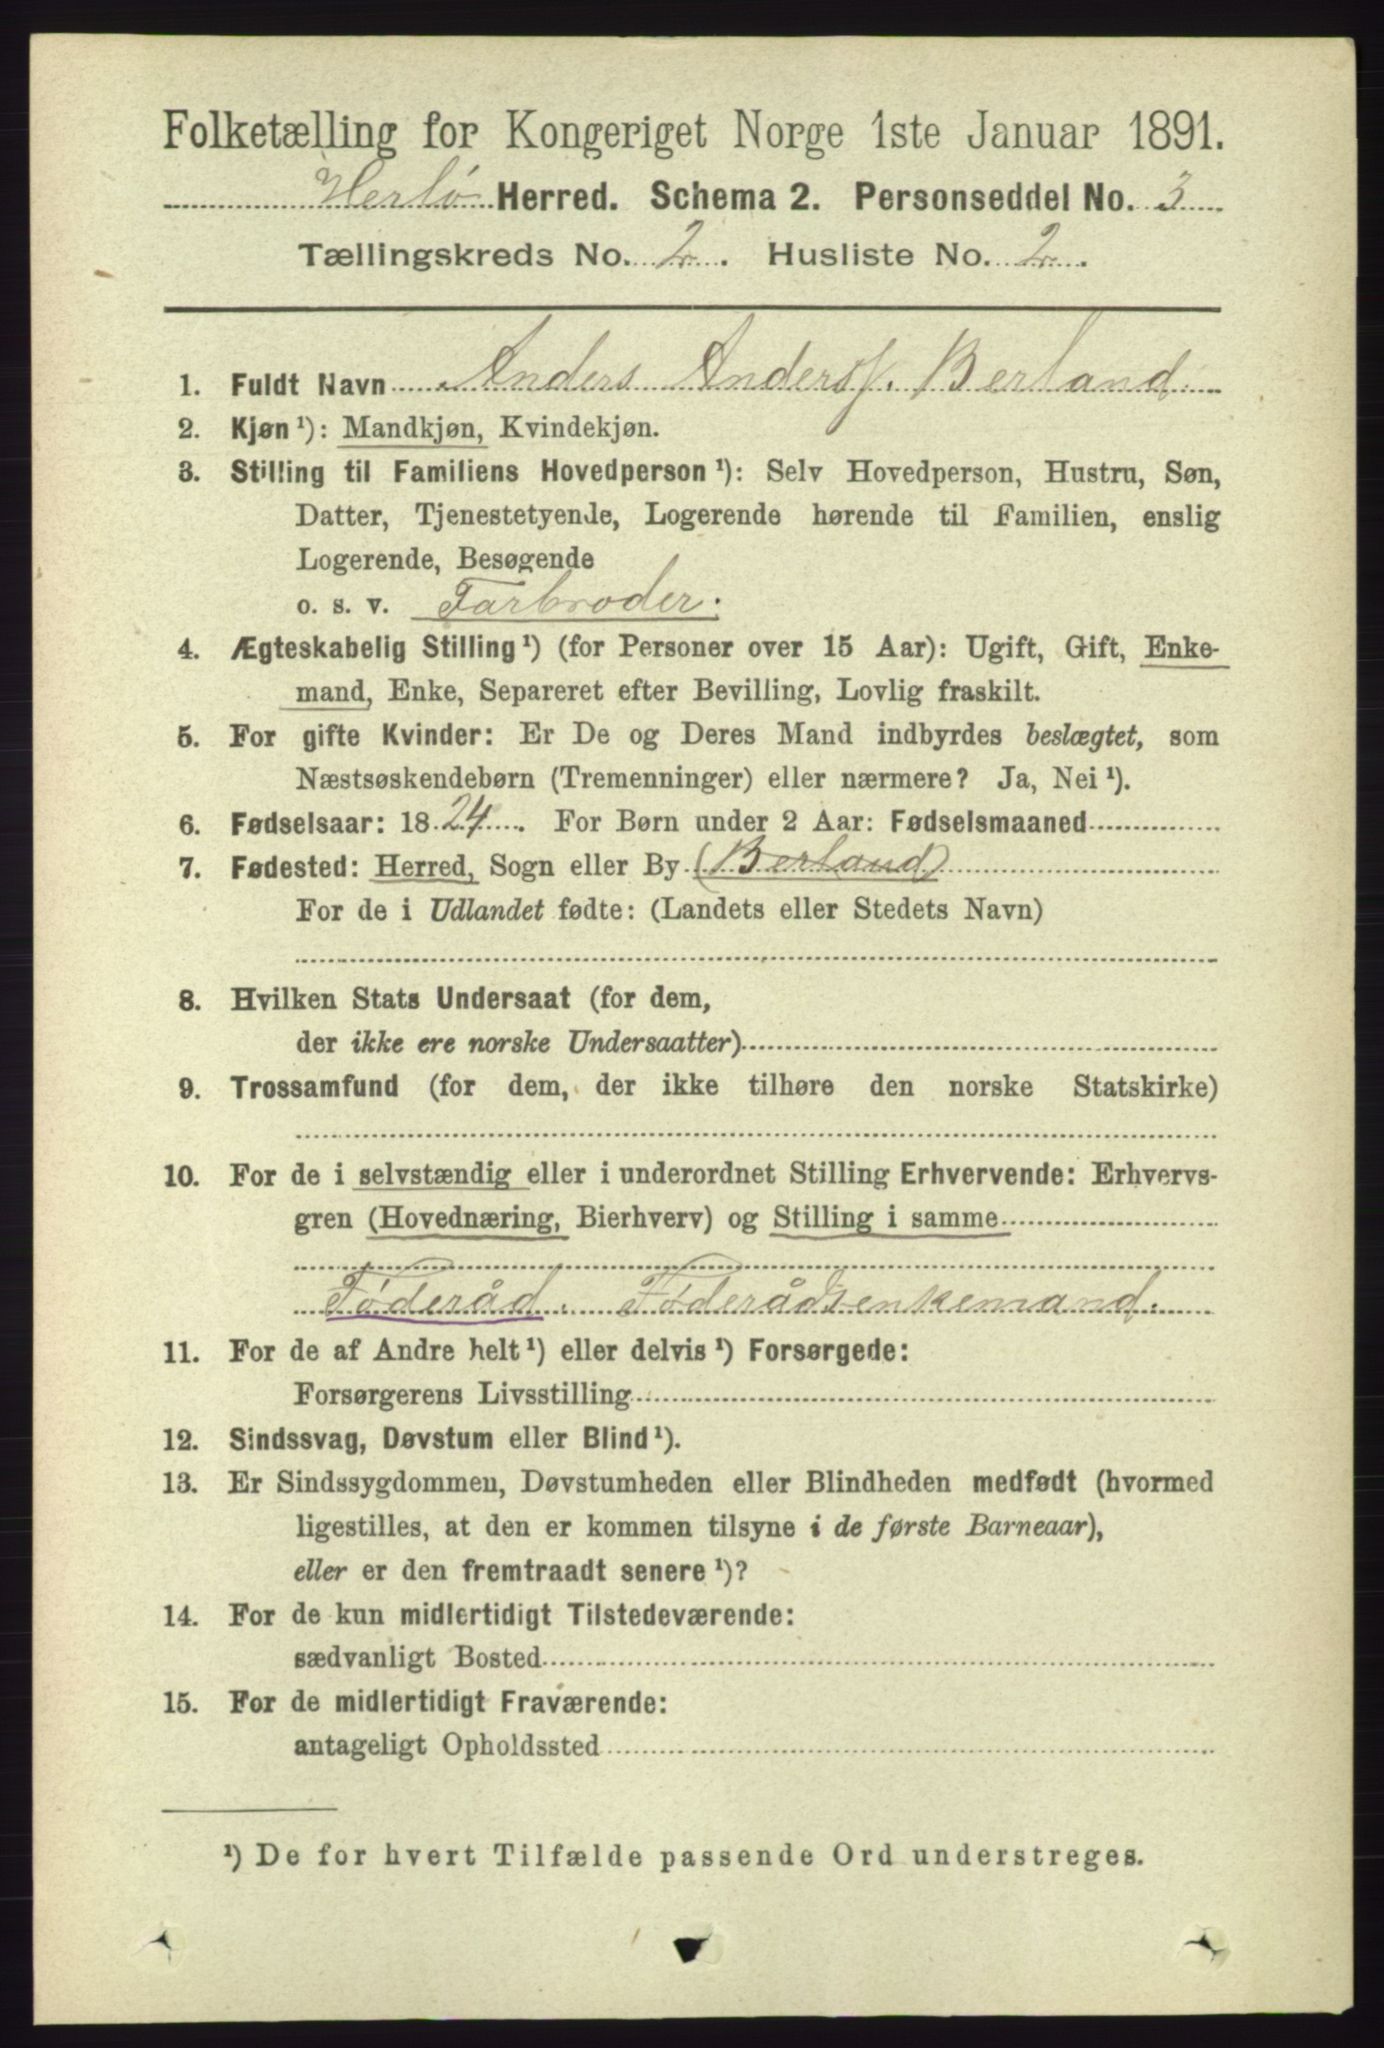 Folketælling for Kongeriget Norge 1ste Januar 1891.
Herlø Herred. Schema 2. Personseddel No. 3
Tællingskreds No. 2. Husliste No. 2.
1. Fuldt Navn Anders Andersf. Berland.
2. Kjøn ¹): Mandkjøn, Kvindekjøn.
3. Stilling til Familiens Hovedperson ¹): Selv Hovedperson, Hustru, Søn,
Datter, Tjenestetyende, Logerende hørende til Familien, enslig
Logerende, Besøgende
o. s. v. Farbroder.
4. Ægteskabelig Stilling ¹) (for Personer over 15 Aar): Ugift, Gift, Enke-
mand, Enke, Separeret efter Bevilling, Lovlig fraskilt.
5. For gifte Kvinder: Er De og Deres Mand indbyrdes beslægtet, som
Næstsøskendebørn (Tremenninger) eller nærmere? Ja, Nei ¹).
6. Fødselsaar: 1824. For Børn under 2 Aar: Fødselsmaaned
7. Fødested: Herred, Sogn eller By (Berland)
For de i Udlandet fødte: (Landets eller Stedets Navn)
8. Hvilken Stats Undersaat (for dem,
der ikke ere norske Undersaatter)
9. Trossamfund (for dem, der ikke tilhøre den norske Statskirke)
10. For de i selvstændig eller i underordnet Stilling Erhvervende: Erhvervs-
gren (Hovednæring, Bierhverv) og Stilling i samme
Føderåd. Føderådsenkemand.
11. For de af Andre helt ¹) eller delvis ¹) Forsørgede:
Forsørgerens Livsstilling
12. Sindssvag, Døvstum eller Blind ¹).
13. Er Sindssygdommen, Døvstumheden eller Blindheden medfødt (hvormed
ligestilles, at den er kommen tilsyne i de første Barneaar),
eller er den fremtraadt senere ¹)?
14. For de kun midlertidigt Tilstedeværende:
sædvanligt Bosted
15. For de midlertidigt Fraværende:
antageligt Opholdssted
¹) De for hvert Tilfælde passende Ord understreges.